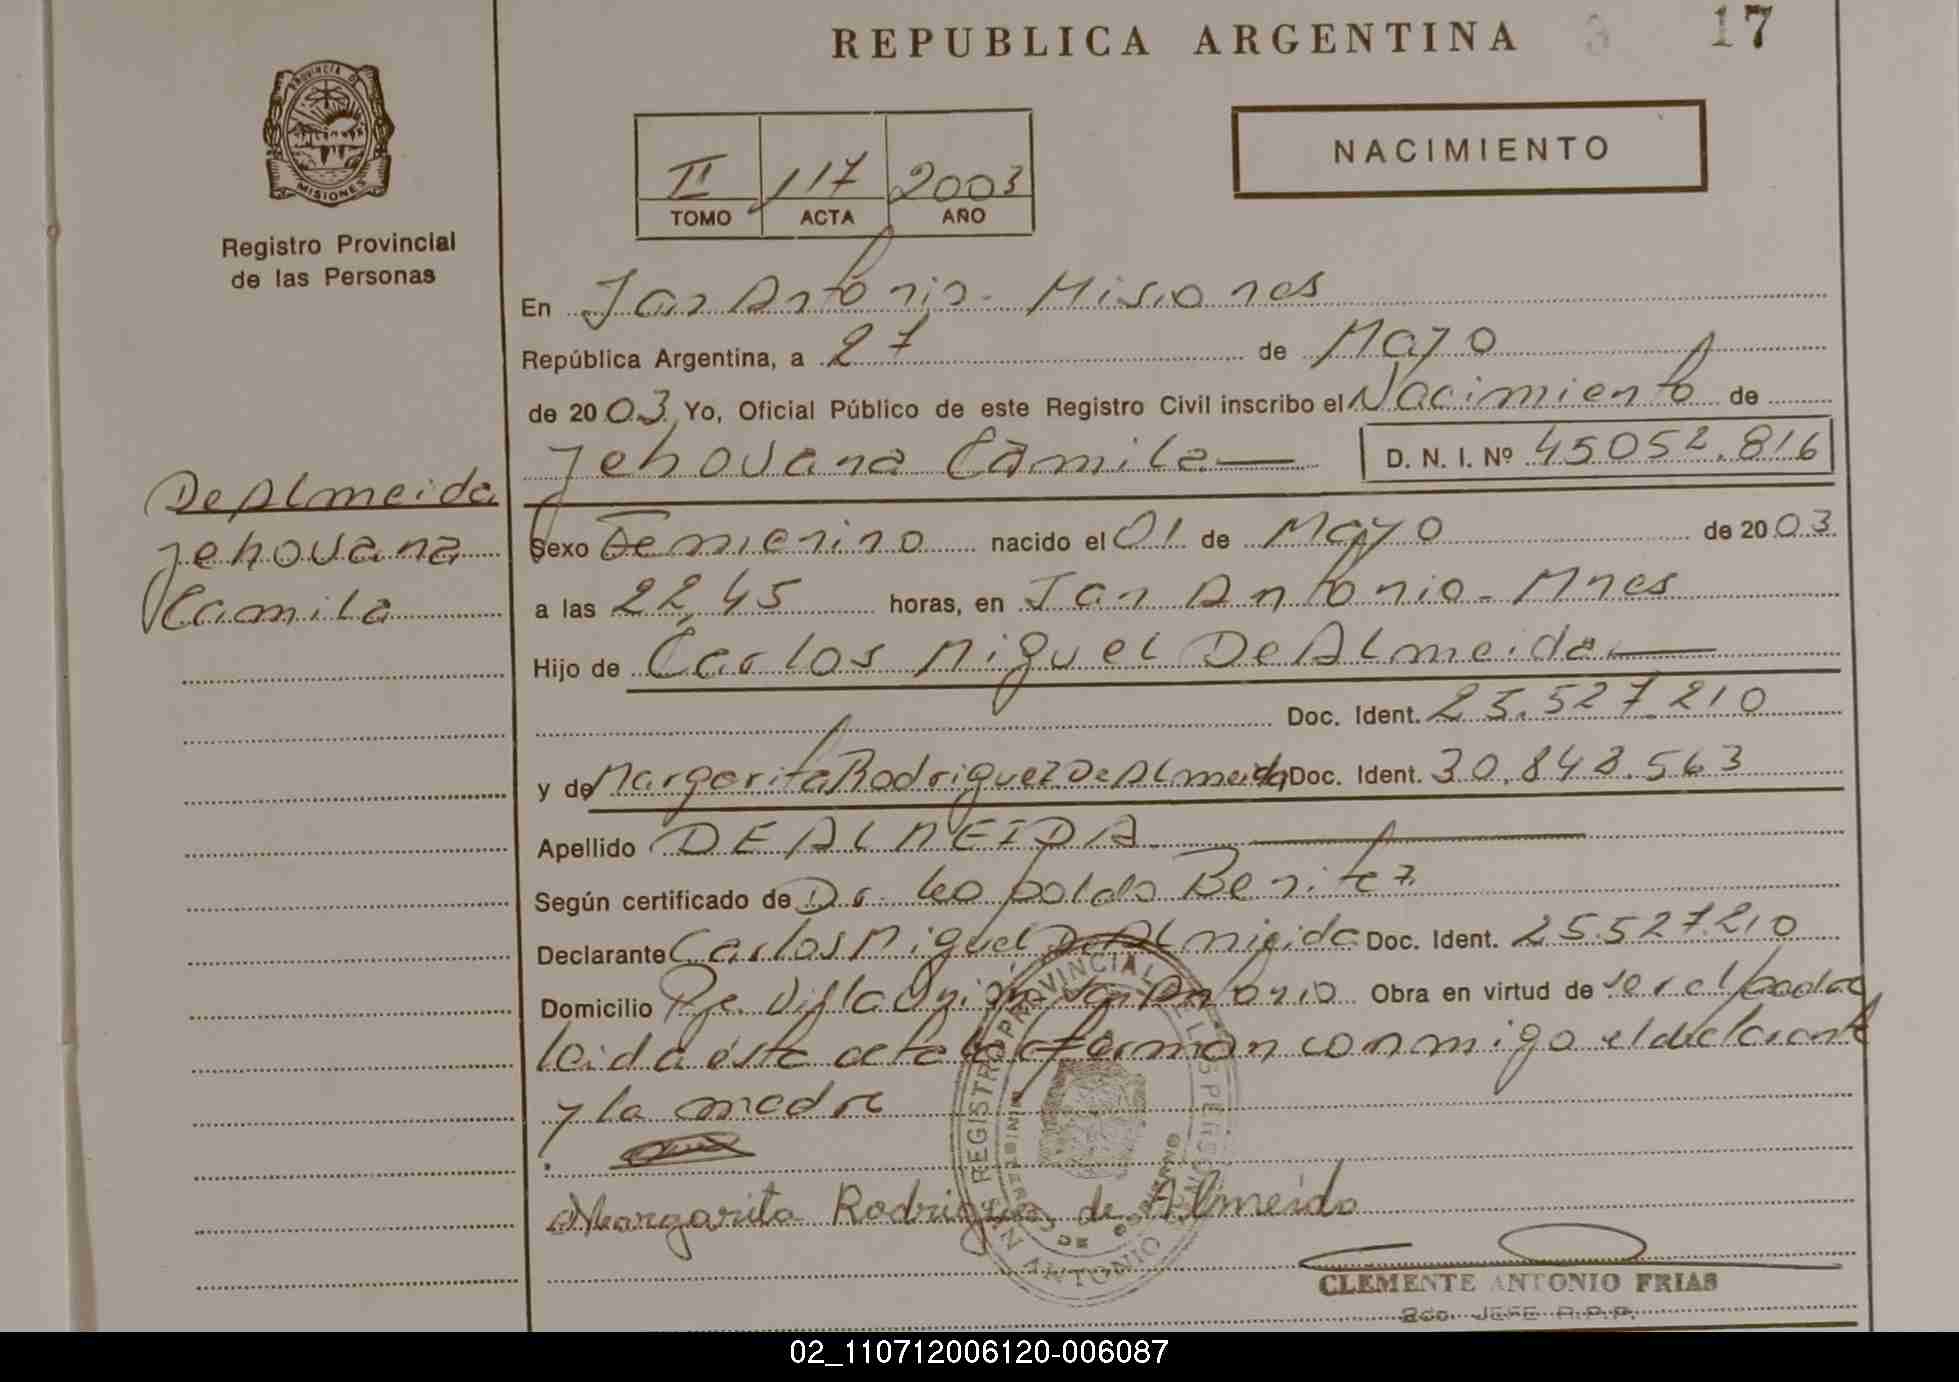 REPUBLICA ARGENTINA 3 17
PROVINCIA DE
MISIONES
Registro Provincial
de las Personas
NACIMIENTO
II 117 2003
TOMO ACTA AÑO
En San Antonio - Misiones
República Argentina, a 27 de Mayo
de 2003 Yo, Oficial Público de este Registro Civil inscribo el Nacimiento de
Jehovana Camila D. N. I. Nº 45052.816
De Almeida
Jehovana
Camila
Sexo Femenino nacido el 01 de Mayo de 2003
a las 22,45 horas, en San Antonio - Mnes
Hijo de Carlos Miguel De Almeida
Doc. Ident. 25.527.210
y de Margarita Rodriguez De Almeida Doc. Ident. 30.848.563
Apellido DE ALMEIDA
Según certificado de Dr. Leopoldo Benitez
Declarante Carlos Miguel De Almieida Doc. Ident. 25.527.210
Domicilio Pje. Villa Unión San Antonio Obra en virtud de ser el padre
leida ésta acta la firman conmigo el declarante
y la madre
Margarita Rodrigues de Almeida
REGISTRO PROVINCIAL DE LAS PERSONAS
MINISTERIO DE GOBIERNO
SAN ANTONIO
CLEMENTE ANTONIO FRIAS
2do. JEFE R.P.P.
02_110712006120-006087